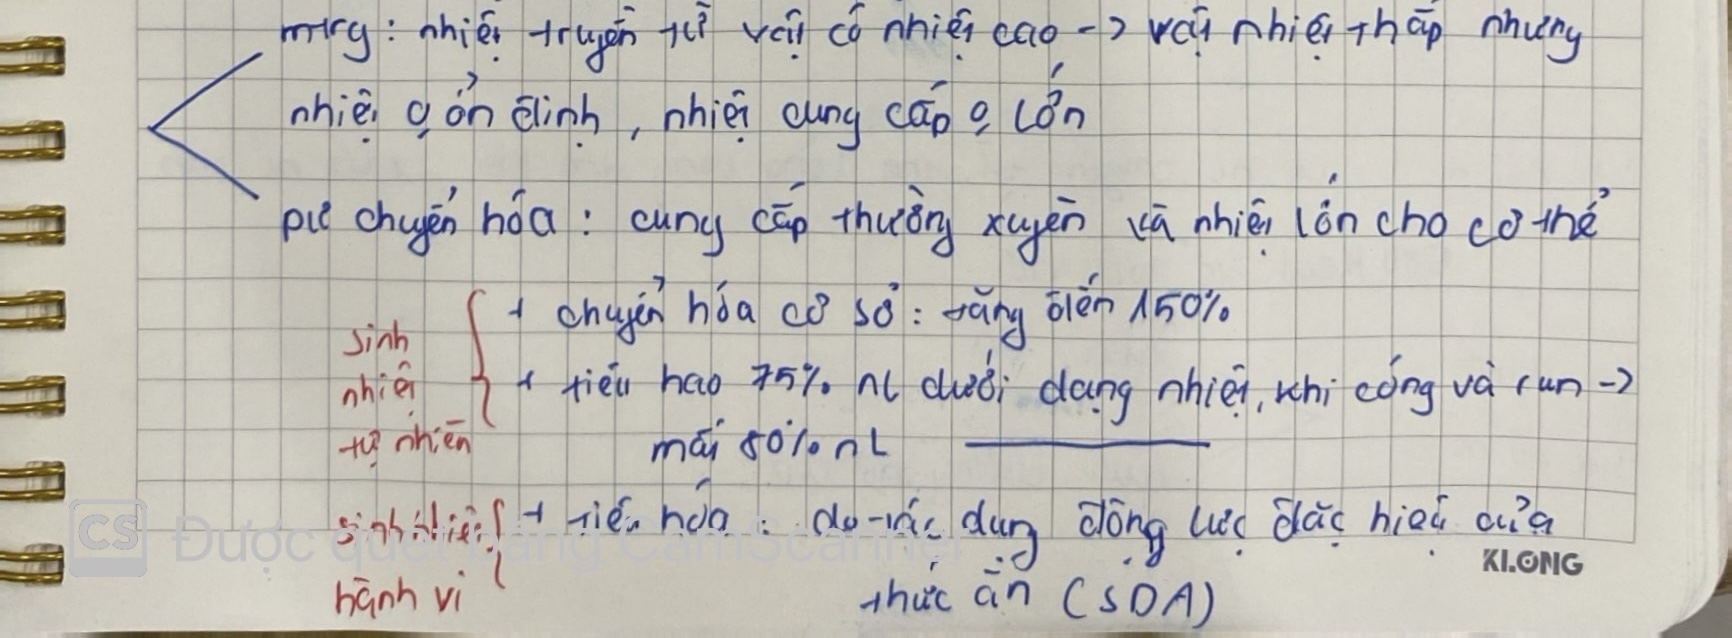 mtrg: nhiệt truyền từ vật có nhiệt cao -> vật nhiệt thấp nhưng
nhiệt q ổn định, nhiệt cung cấp q lớn
pư chuyển hóa: cung cấp thường xuyên và nhiệt lớn cho cơ thể
+ chuyển hóa cơ sở: tăng đến 150%
sinh nhiệt tự nhiên
+ tiêu hao 75% nL dưới dạng nhiệt, khi cóng và run ->
mất 80% nL
sinh nhiệt hành vi
+ tiêu hóa: do tác dụng động lực đặc hiệu của
thức ăn (SDA)
KLONG
CS Được quét bằng CamScanner